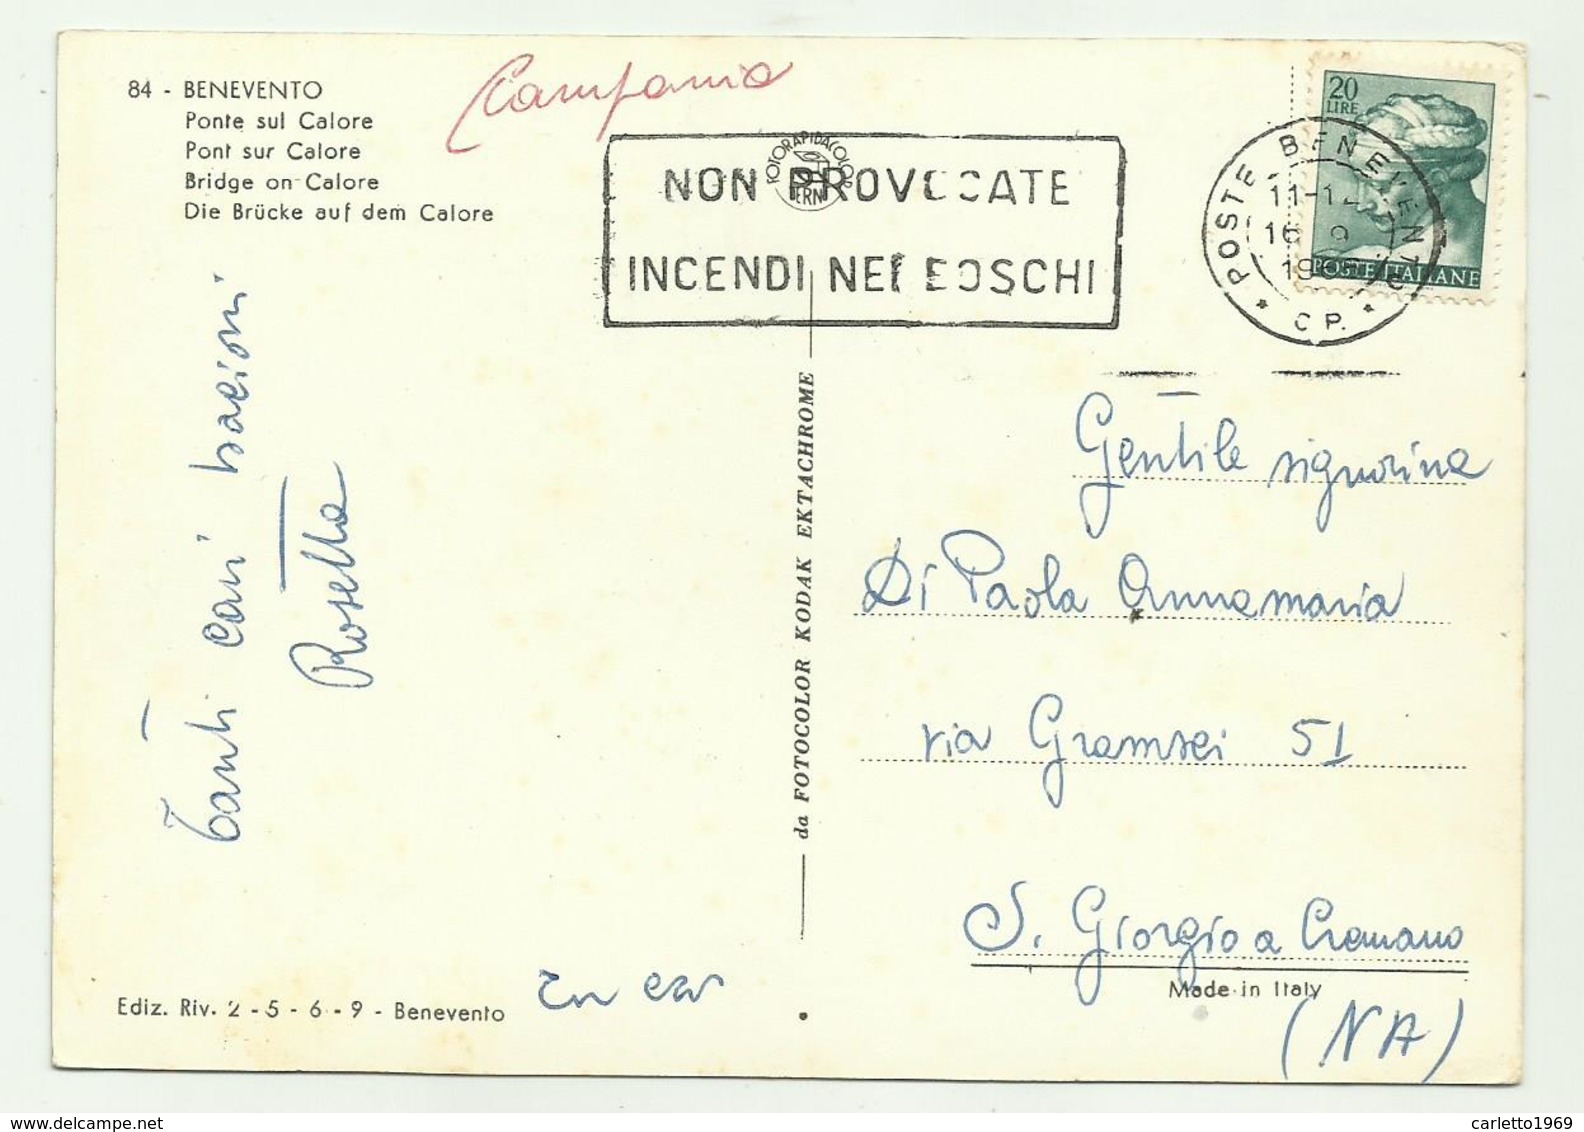 84 - BENEVENTO
Ponte sul Calore
Pont sur Calore
Bridge on Calore
Die Brücke auf dem Calore
Campania
FOTORAPIDACOLOR
TERNI
NON PROVOCATE
INCENDI NEI BOSCHI
20
LIRE
POSTE ITALIANE
POSTE BENEVENTO
11-12
C P.
Tanti cari bacioni
Rosetta
da FOTOCOLOR KODAK EKTACHROME
Gentile signorina
Di Paola Annamaria
via Gramsci 51
S. Giorgio a Cremano
(NA)
Made in Italy
Ediz. Riv. 2 - 5 - 6 - 9 - Benevento
carletto1969